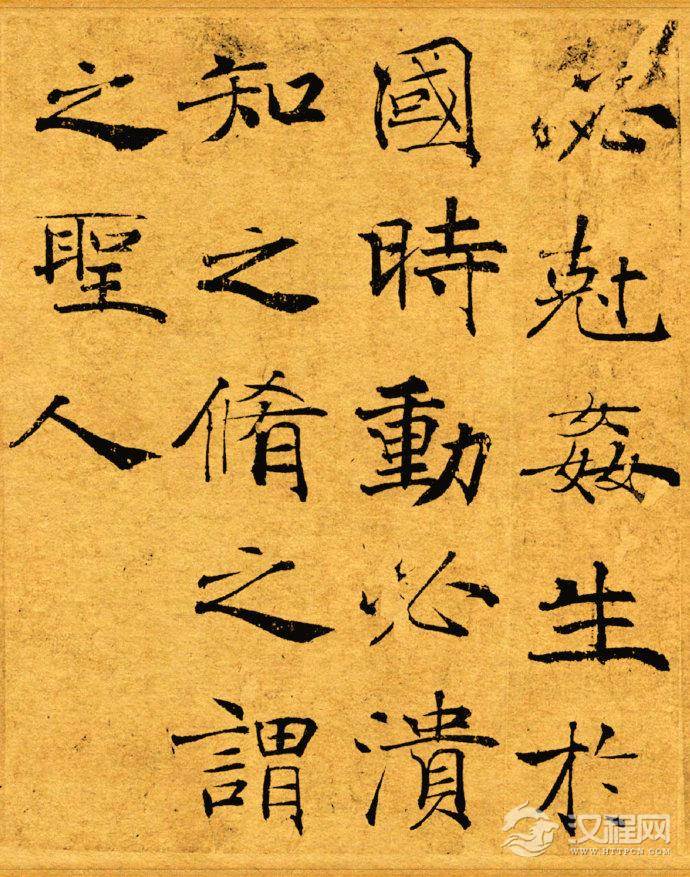 必尅姦生於
國時動必潰
知之脩之謂
之聖人
汉程网
WWW.HTTPCN.COM